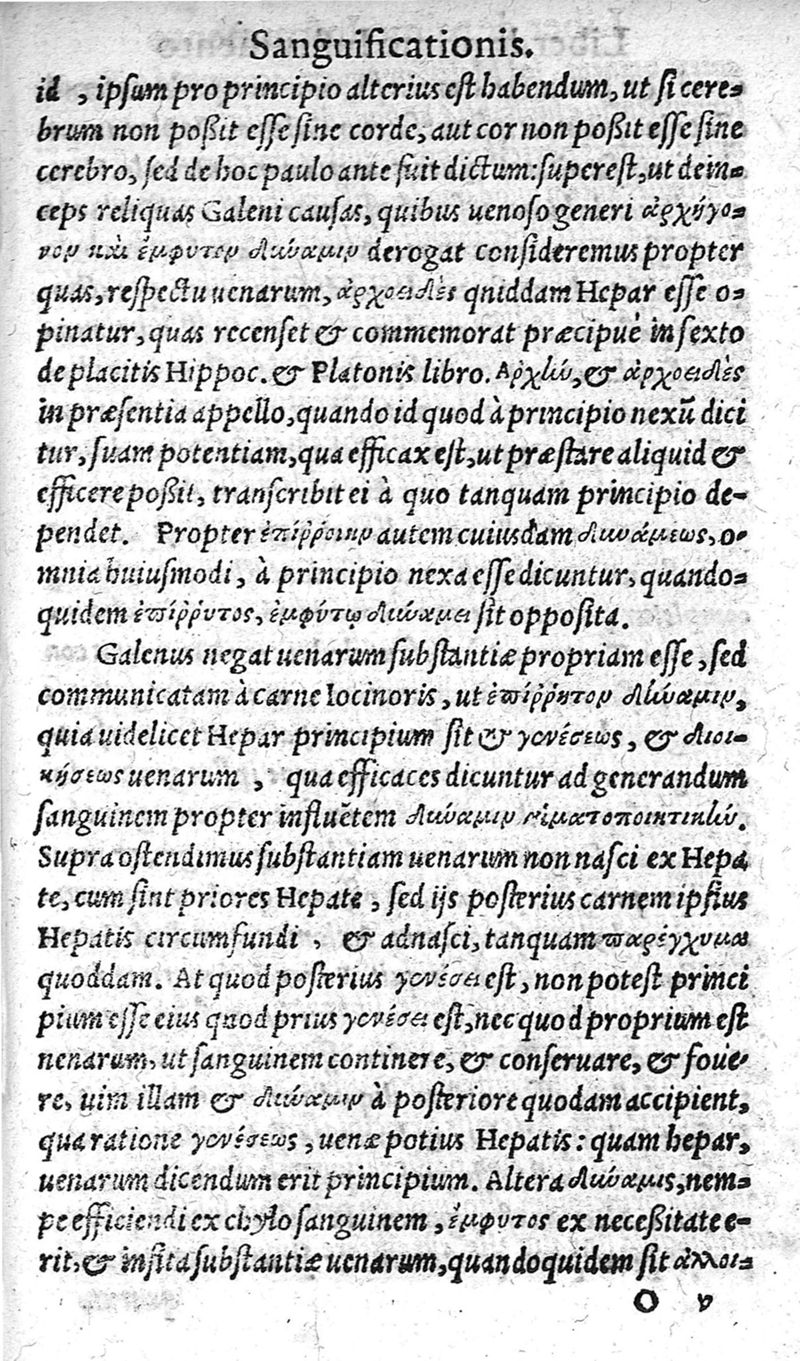 Sanguificationis.
id , ipsum pro principio alterius est habendum, ut si cere-
brum non poßit esse sine corde, aut cor non poßit esse sine
cerebro, sed de hoc paulo ante fuit dictum: superest, ut dein-
ceps reliquas Galeni causas, quibus uenoso generi ἀρχήγο-
νον καὶ ἐμφυτον δύναμιν derogat consideremus propter
quas, respectu uenarum, ἀρχοειδὲς qniddam Hepar esse o-
pinatur, quas recenset & commemorat præcipuè in sexto
de placitis Hippoc. & Platonis libro. Αρχὴν, & ἀρχοειδὲς
in præsentia appello, quando id quod à principio nexū dici
tur, suam potentiam, qua efficax est, ut præstare aliquid &
efficere poßit, transcribit ei à quo tanquam principio de-
pendet. Propter ἐπίῤῥοιην autem cuiusdam δυνάμεως, o-
mnia huiusmodi, à principio nexa esse dicuntur, quando-
quidem ἐπίῤῥυτος, ἐμφύτῳ δυνάμει sit opposita.
Galenus negat uenarum substantiæ propriam esse, sed
communicatam à carne Iocinoris, ut ἐπίῤῥητον δύναμιν,
quia uidelicet Hepar principium sit & γενέσεως, & διοι-
κήσεως uenarum , qua efficaces dicuntur ad generandum
sanguinem propter influētem δύναμιν αἱματοποιητικὴν.
Supra ostendimus substantiam uenarum non nasci ex Hepa
te, cum sint priores Hepate, sed ijs posterius carnem ipsius
Hepatis circumfundi , & adnasci, tanquam παρέγχυμα
quoddam. At quod posterius γενέσει est, non potest princi
pium esse eius quod prius γενέσει est, nec quod proprium est
nenarum, ut sanguinem continere, & conseruare, & foue-
re, uim illam & δύναμιν à posteriore quodam accipient,
qua ratione γενέσεως, uenæ potius Hepatis: quam hepar,
uenarum dicendum erit principium. Altera δύναμις, nem-
pe efficiendi ex chylo sanguinem, ἐμφυτος ex neceßitate e-
rit, & insita substantiæ uenarum, quandoquidem sit ἀλλοι-
O v